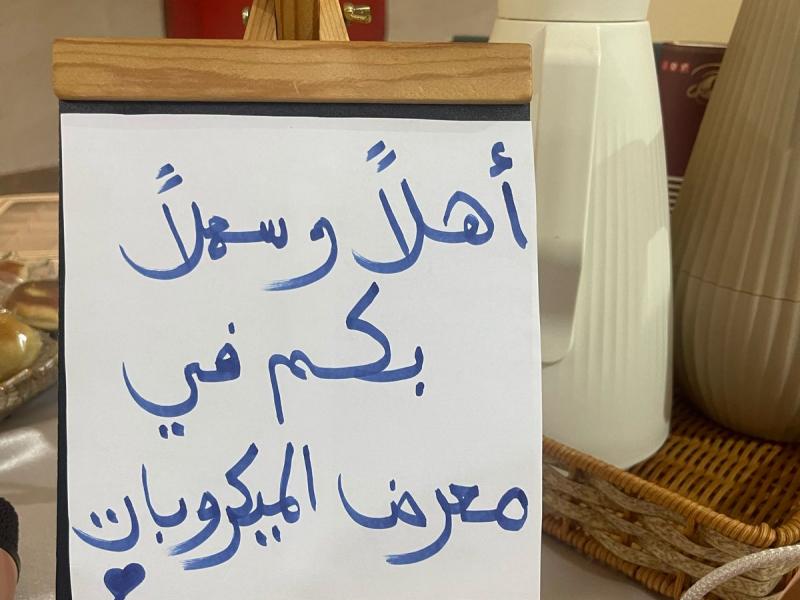 أهلاً وسهلاً
بكم في
معرض الميكروبات